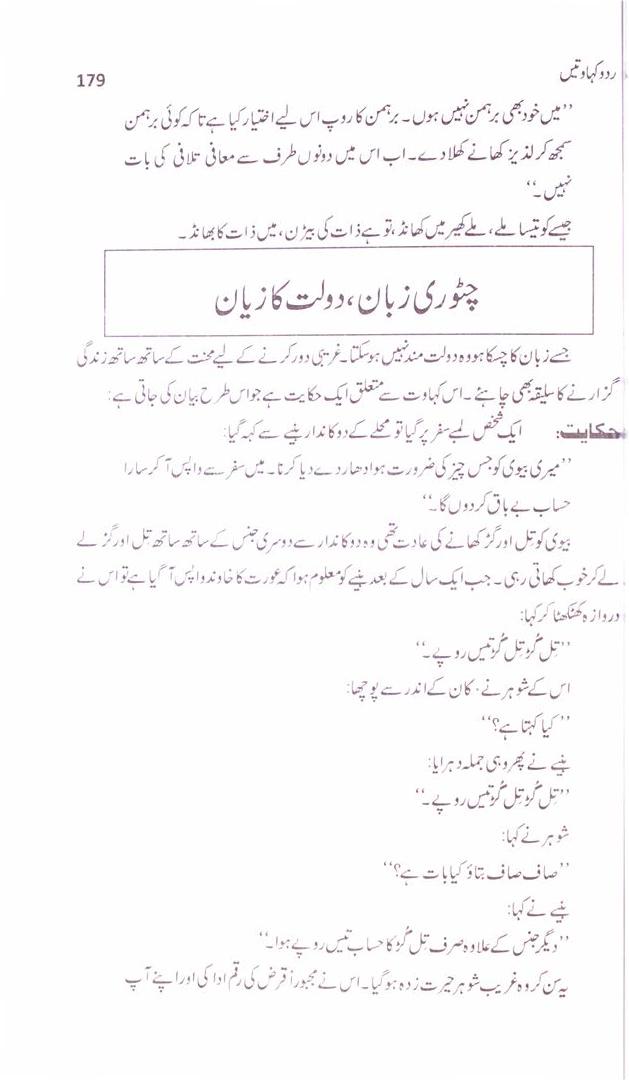 ردو کہاوتیں
179
’’میں خود بھی برہمن نہیں ہوں۔ برہمن کا روپ اس لیے اختیار کیا ہے تاکہ کوئی برہمن
سمجھ کر لذیز کھانے کھلا دے۔ اب اس میں دونوں طرف سے معافی تلافی کی بات
نہیں۔‘‘
جیسے کو تیسا ملے، ملے کھیر میں کھانڈ، تو ہے ذات کی بیڑن، میں ذات کا بھانڈ۔
چٹوری زبان، دولت کا زیان
جسے زبان کا چسکا ہو وہ دولت مند نہیں ہوسکتا۔ غریبی دور کرنے کے لیے محنت کے ساتھ ساتھ زندگی
گزارنے کا سلیقہ بھی چاہئے۔ اس کہاوت سے متعلق ایک حکایت ہے جو اس طرح بیان کی جاتی ہے:
حکایت: ایک شخص لمبے سفر پر گیا تو محلے کے دوکاندار بنیے سے کہہ گیا:
’’میری بیوی کو جس چیز کی ضرورت ہو ادھار دے دیا کرنا۔ میں سفر سے واپس آ کر سارا
حساب بے باق کر دوں گا۔‘‘
بیوی کو تِل اور گڑ کھانے کی عادت تھی وہ دوکاندار سے دوسری جنس کے ساتھ ساتھ تِل اور گڑ لے
لے کر خوب کھاتی رہی۔ جب ایک سال کے بعد بنیے کو معلوم ہوا کہ عورت کا خاوند واپس آ گیا ہے تو اس نے
دروازہ کھٹکھٹا کر کہا:
’’تِل گُڑ تِل گُڑ تیس روپے۔‘‘
اس کے شوہر نے کان کے اندر سے پوچھا:
’’کیا کہتا ہے؟‘‘
بنیے نے پھر وہی جملہ دہرایا:
’’تِل گُڑ تِل گُڑ تیس روپے۔‘‘
شوہر نے کہا:
’’صاف صاف بتاؤ کیا بات ہے؟‘‘
بنیے نے کہا:
’’دیگر جنس کے علاوہ صرف تِل گُڑ کا حساب تیس روپے ہوا۔‘‘
یہ سن کر وہ غریب شوہر حیرت زدہ ہو گیا۔ اس نے مجبوراً قرض کی رقم ادا کی اور اپنے آپ